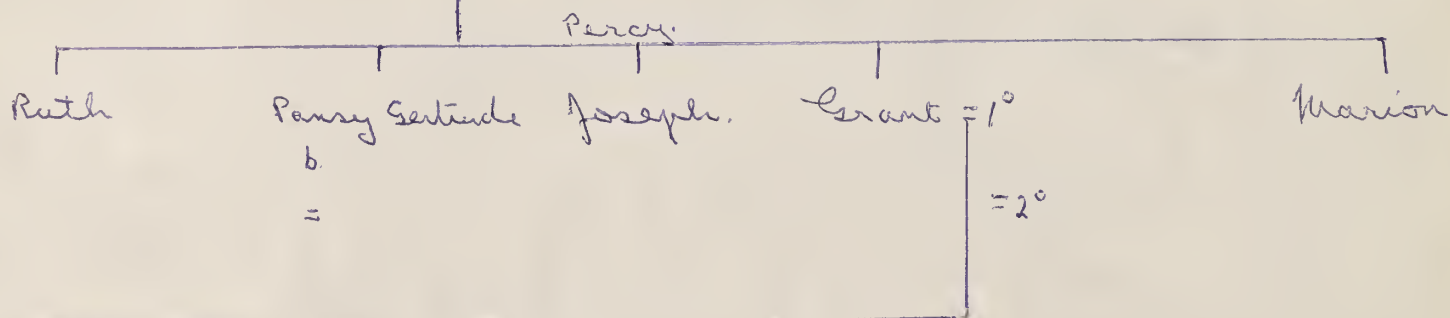 Percy.
Ruth Pansy Gertrude Joseph. Grant = 1°
Marion
b.
=
= 2°